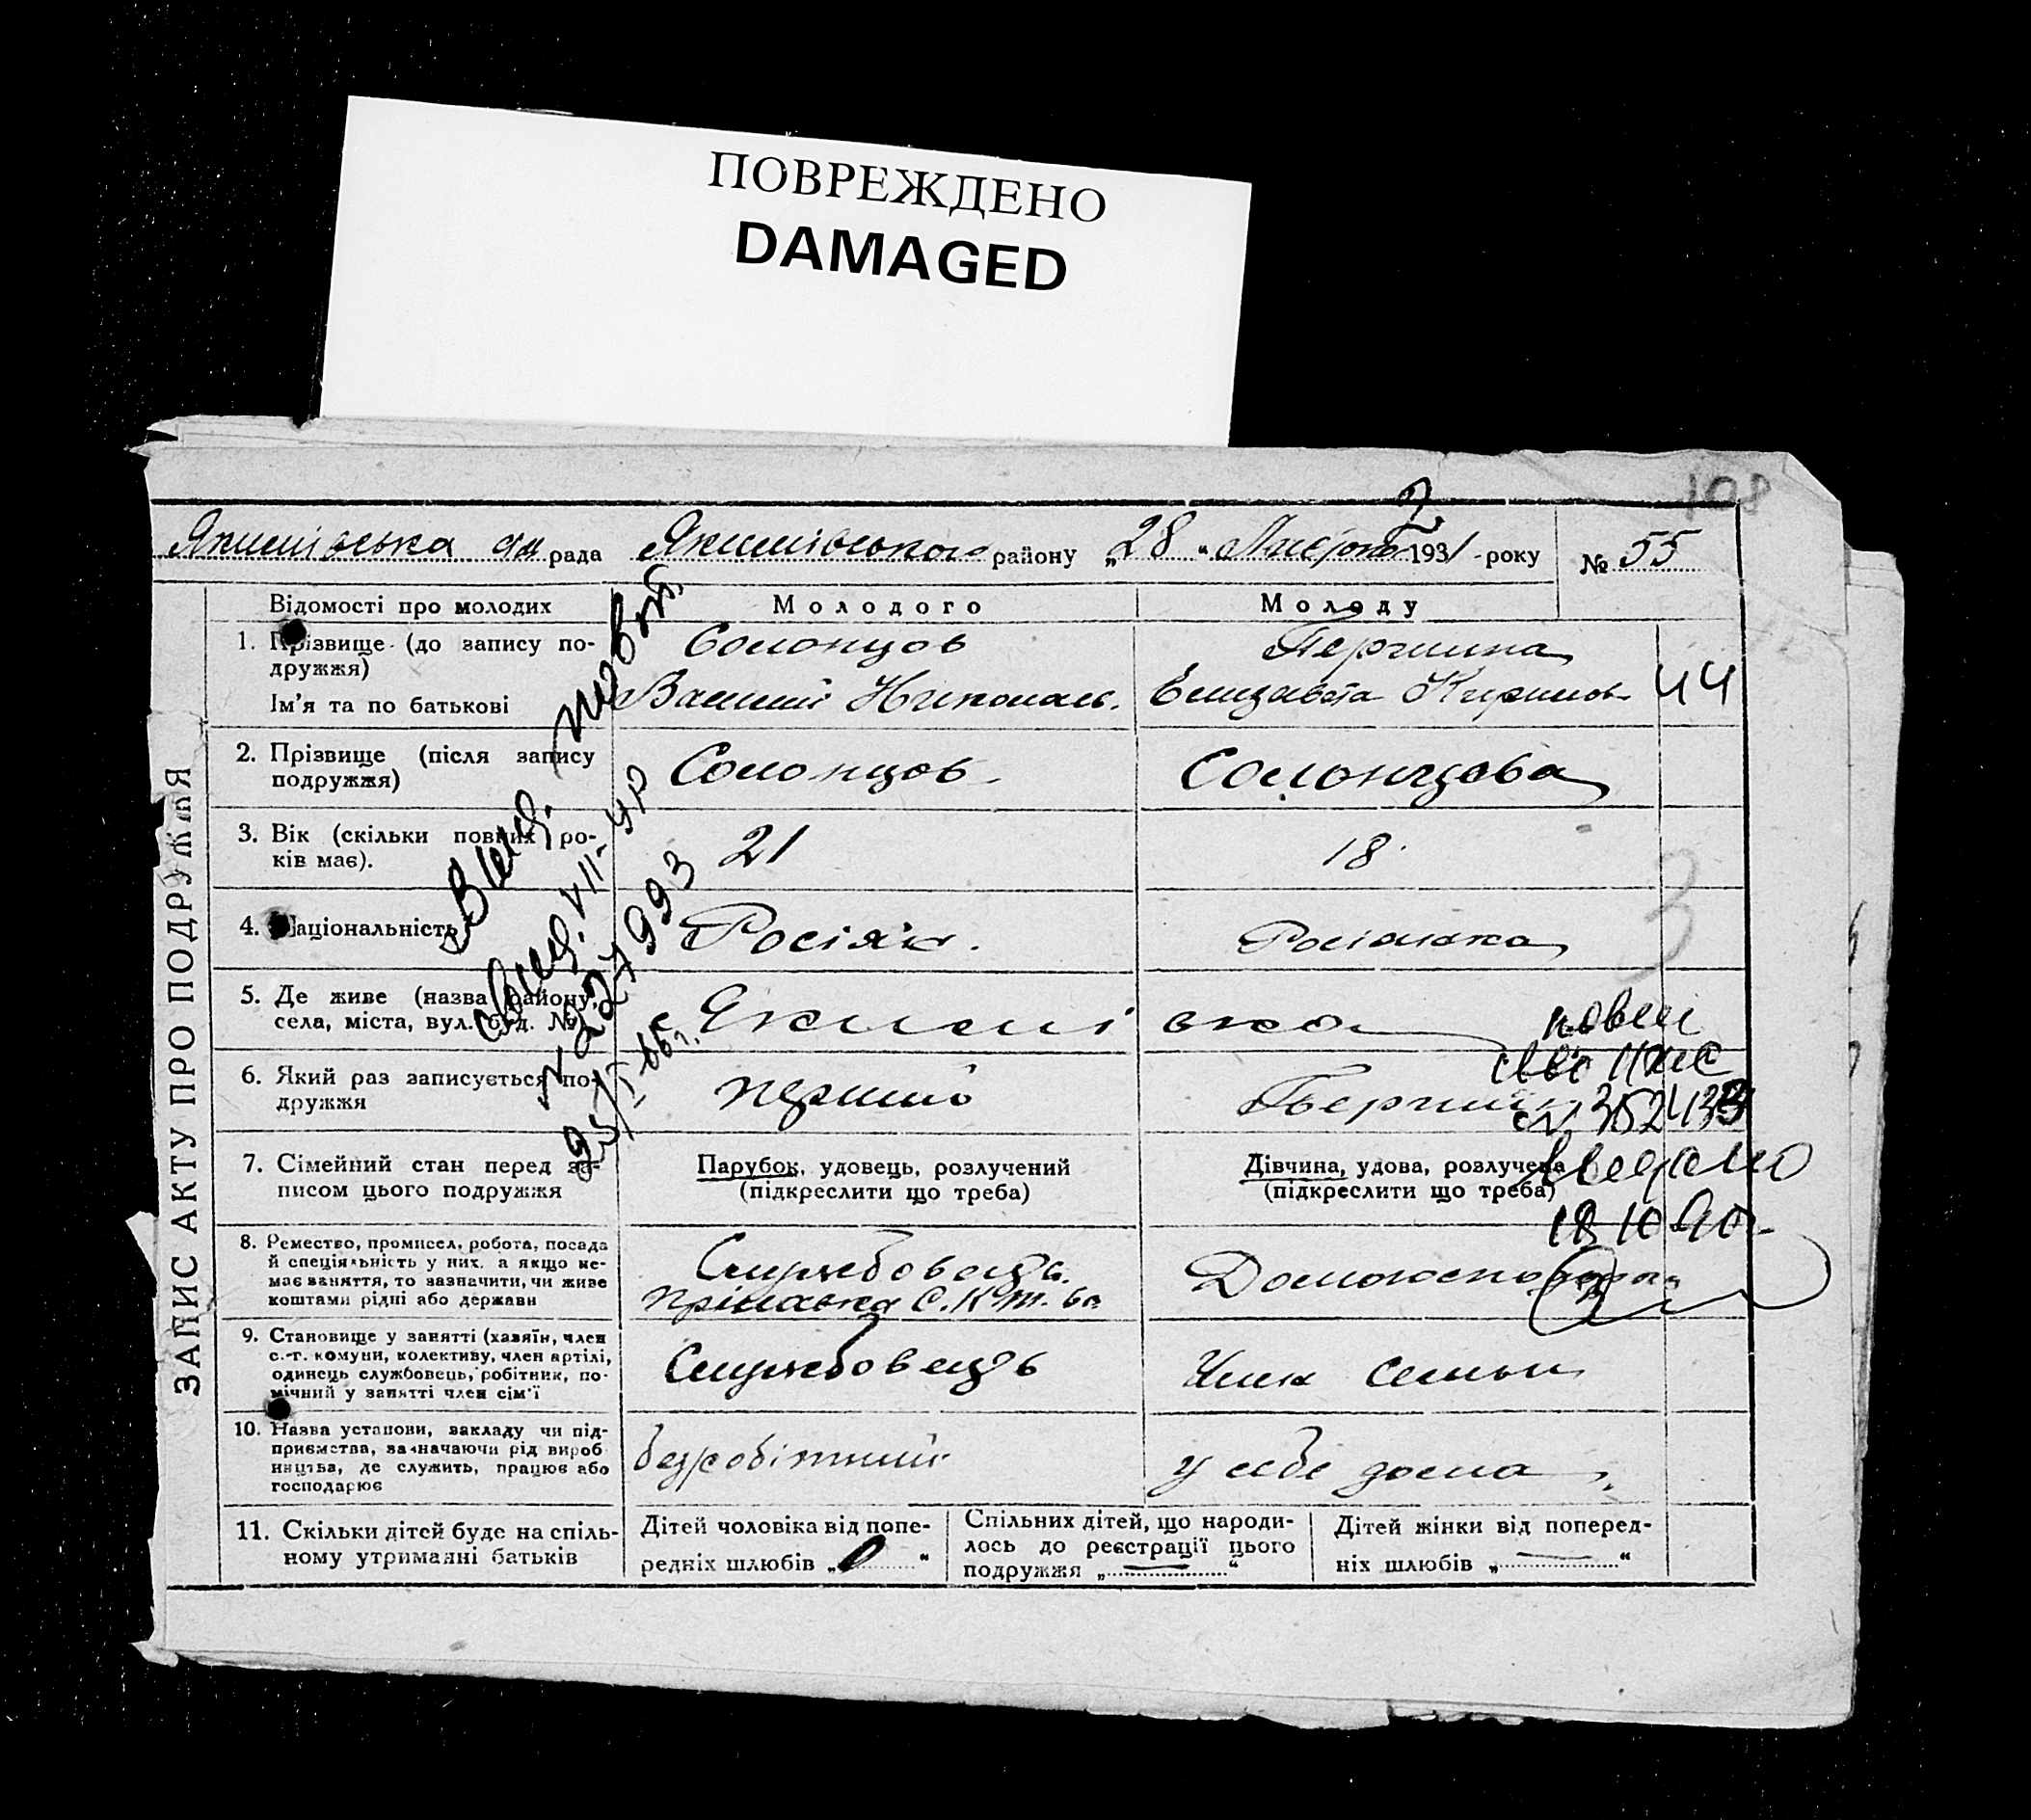 ПОВРЕЖДЕНО
DAMAGED
108
2
Якимівська рада Якимівського району „28“ 1931 року № 55
ЗАПИС АКТУ ПРО ПОДРУЖЖЯ
Відомості про молодих
Молодого
Молоду
1. Прізвище (до запису по-
дружжя)
Ім'я та по батькові
Солонцов
Першина
Николаев.
Елизавета Кирилов
44
2. Прізвище (після запису
подружжя)
Солонцов
Солонцова
3. Вік (скільки повних ро-
ків має).
21
18
4. Національність
Росіян.
Росіянка
5. Де живе (назва району,
села, міста, вул. буд. №)
с Якимівка
6. Який раз записується по-
дружжя
перший
7. Сімейний стан перед за-
писом цього подружжя
Парубок, удовець, розлучений
(підкреслити що треба)
Дівчина, удова, розлучена
(підкреслити що треба)
8. Ремество, промисел, робота, посада
й спеціяльність у них, а якщо не-
має заняття, то зазначити, чи живе
коштами рідні або держави
Службовець
9. Становище у занятті (хазяїн, член
с.-г. комуни, колективу, член артілі,
одинець службовець, робітник, по-
мічний у занятті член сім'ї
Службовець
Член семьи
10. Назва установи, закладу чи під-
приємства, зазначаючи рід вироб
ництва, де служить, працює або
господарює
безробітний
у себе дома
11. Скільки дітей буде на спіль-
ному утриманні батьків
Дітей чоловіка від попе-
редніх шлюбів „0“
Спільних дітей, що народи-
лось до реєстрації цього
подружжя „—“
Дітей жінки від поперед-
ніх шлюбів „—“
3